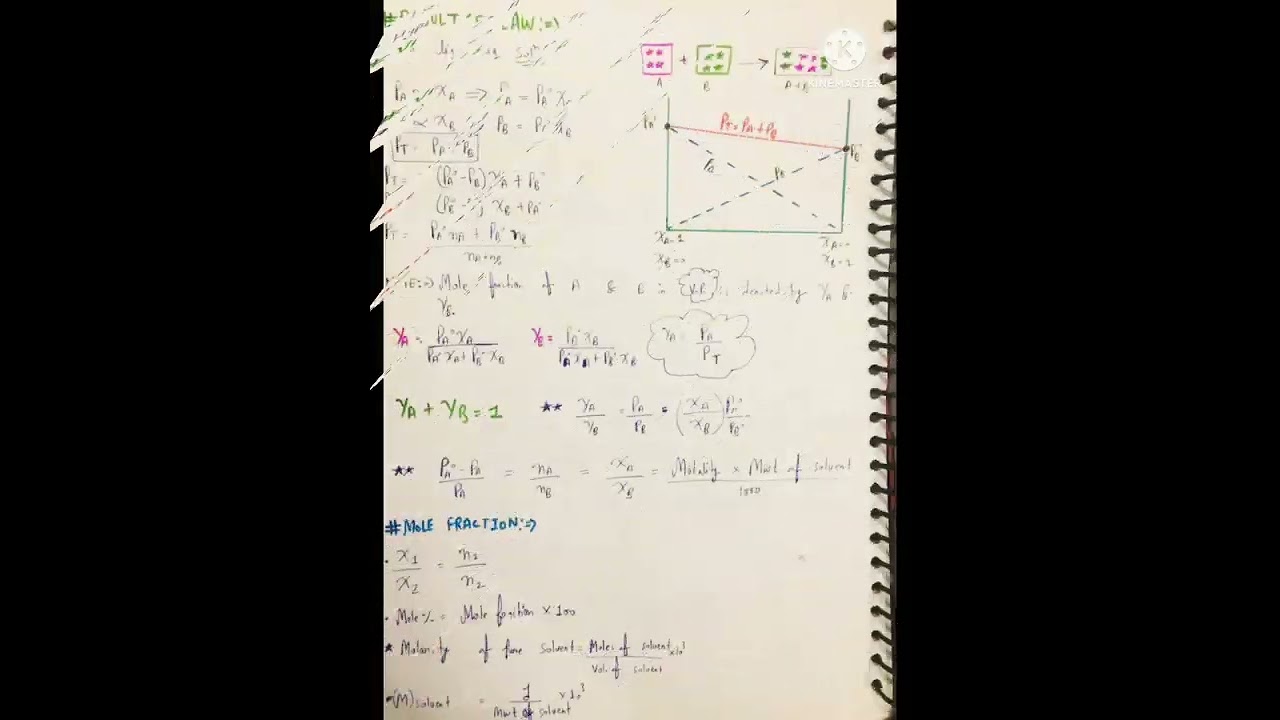 AW:⇒
liq liq solⁿ
A + B → A+B
KINEMASTER
P_A = P_A° x
∝ x_B P_B = P x_B
P_T = P_A P_B
P_T = (P_A° - P_B°) x_A + P_B°
x_B + P_A°
P_T = P_A° n_A + P_B° n_B / n_A + n_B
P_A°
P_T = P_A + P_B
P_B°
P_A
P_B
x_A = 1
x_B = 0
x_A = 0
x_B = 1
Mole fraction of A & B in is denoted by Y_A &
Y_B.
Y_A = P_A° x_A / P_A° x_A + P_B° x_B
Y_B = P_A° x_B / P_A° x_A + P_B° x_B
Y_A = P_A / P_T
Y_A + Y_B = 1
★★ Y_A / Y_B = P_A / P_B = (x_A / x_B) P_A° / P_B°
★★ P_A° - P_A / P_A = n_A / n_B = x_A / x_B = Molality × Mwt of solvent / 1000
#MOLE FRACTION:⇒
• x_1 / x_2 = n_1 / n_2
• Mole % = Mole fraction × 100
★ Molarity of pure solvent = Moles of solvent / Vol. of solvent × 10³
• (M) solvent = 1 / Mwt of solvent × 10³